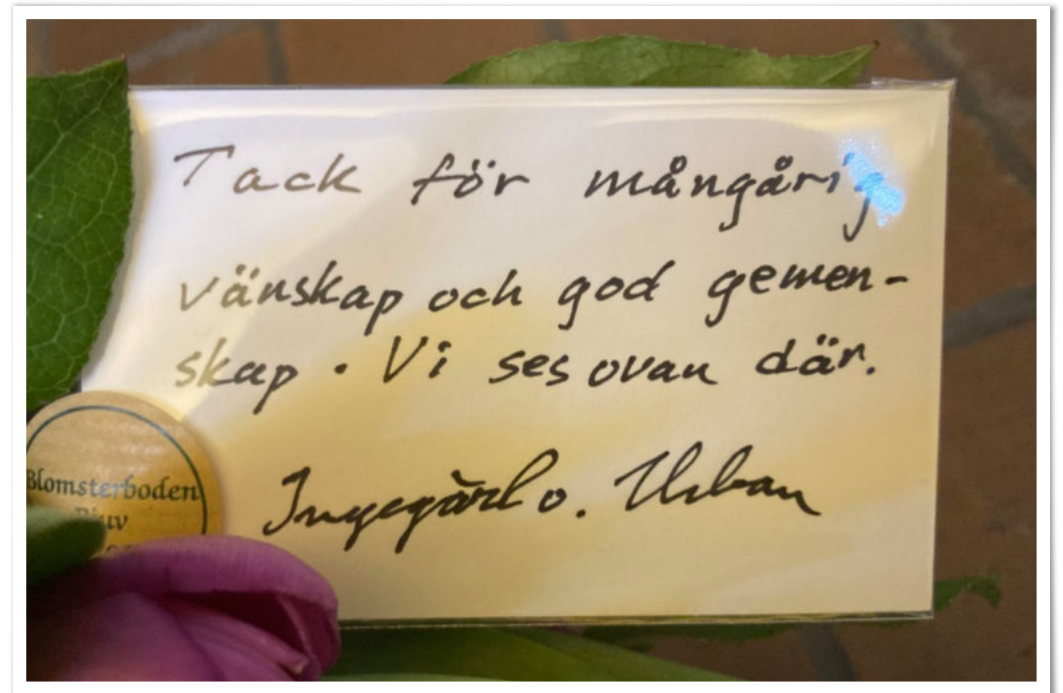 Tack för mångårig
vänskap och god gemen-
skap. Vi ses ovan där.
Ingegärd o. Urban
Blomsterboden
Bjuv